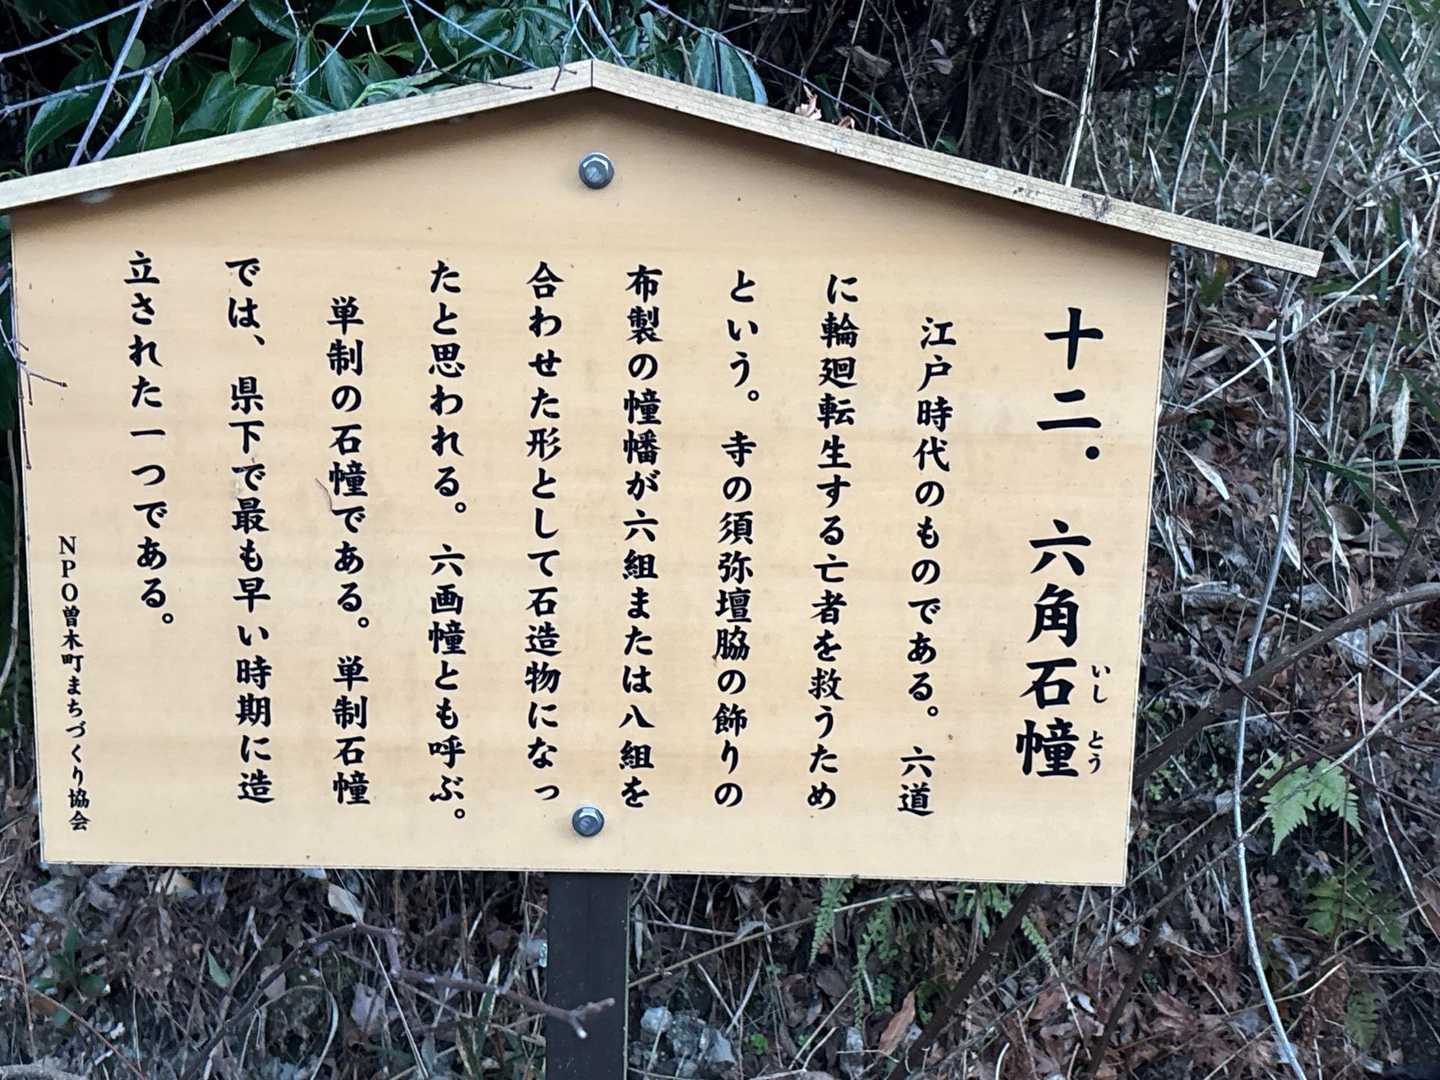 十二. 六角石幢
いし とう
江戸時代のものである。六道
に輪廻転生する亡者を救うため
という。寺の須弥壇脇の飾りの
布製の幢幡が六組または八組を
合わせた形として石造物になっ
たと思われる。六画幢とも呼ぶ。
単制の石幢である。単制石幢
では、県下で最も早い時期に造
立された一つである。
NPO曽木町まちづくり協会